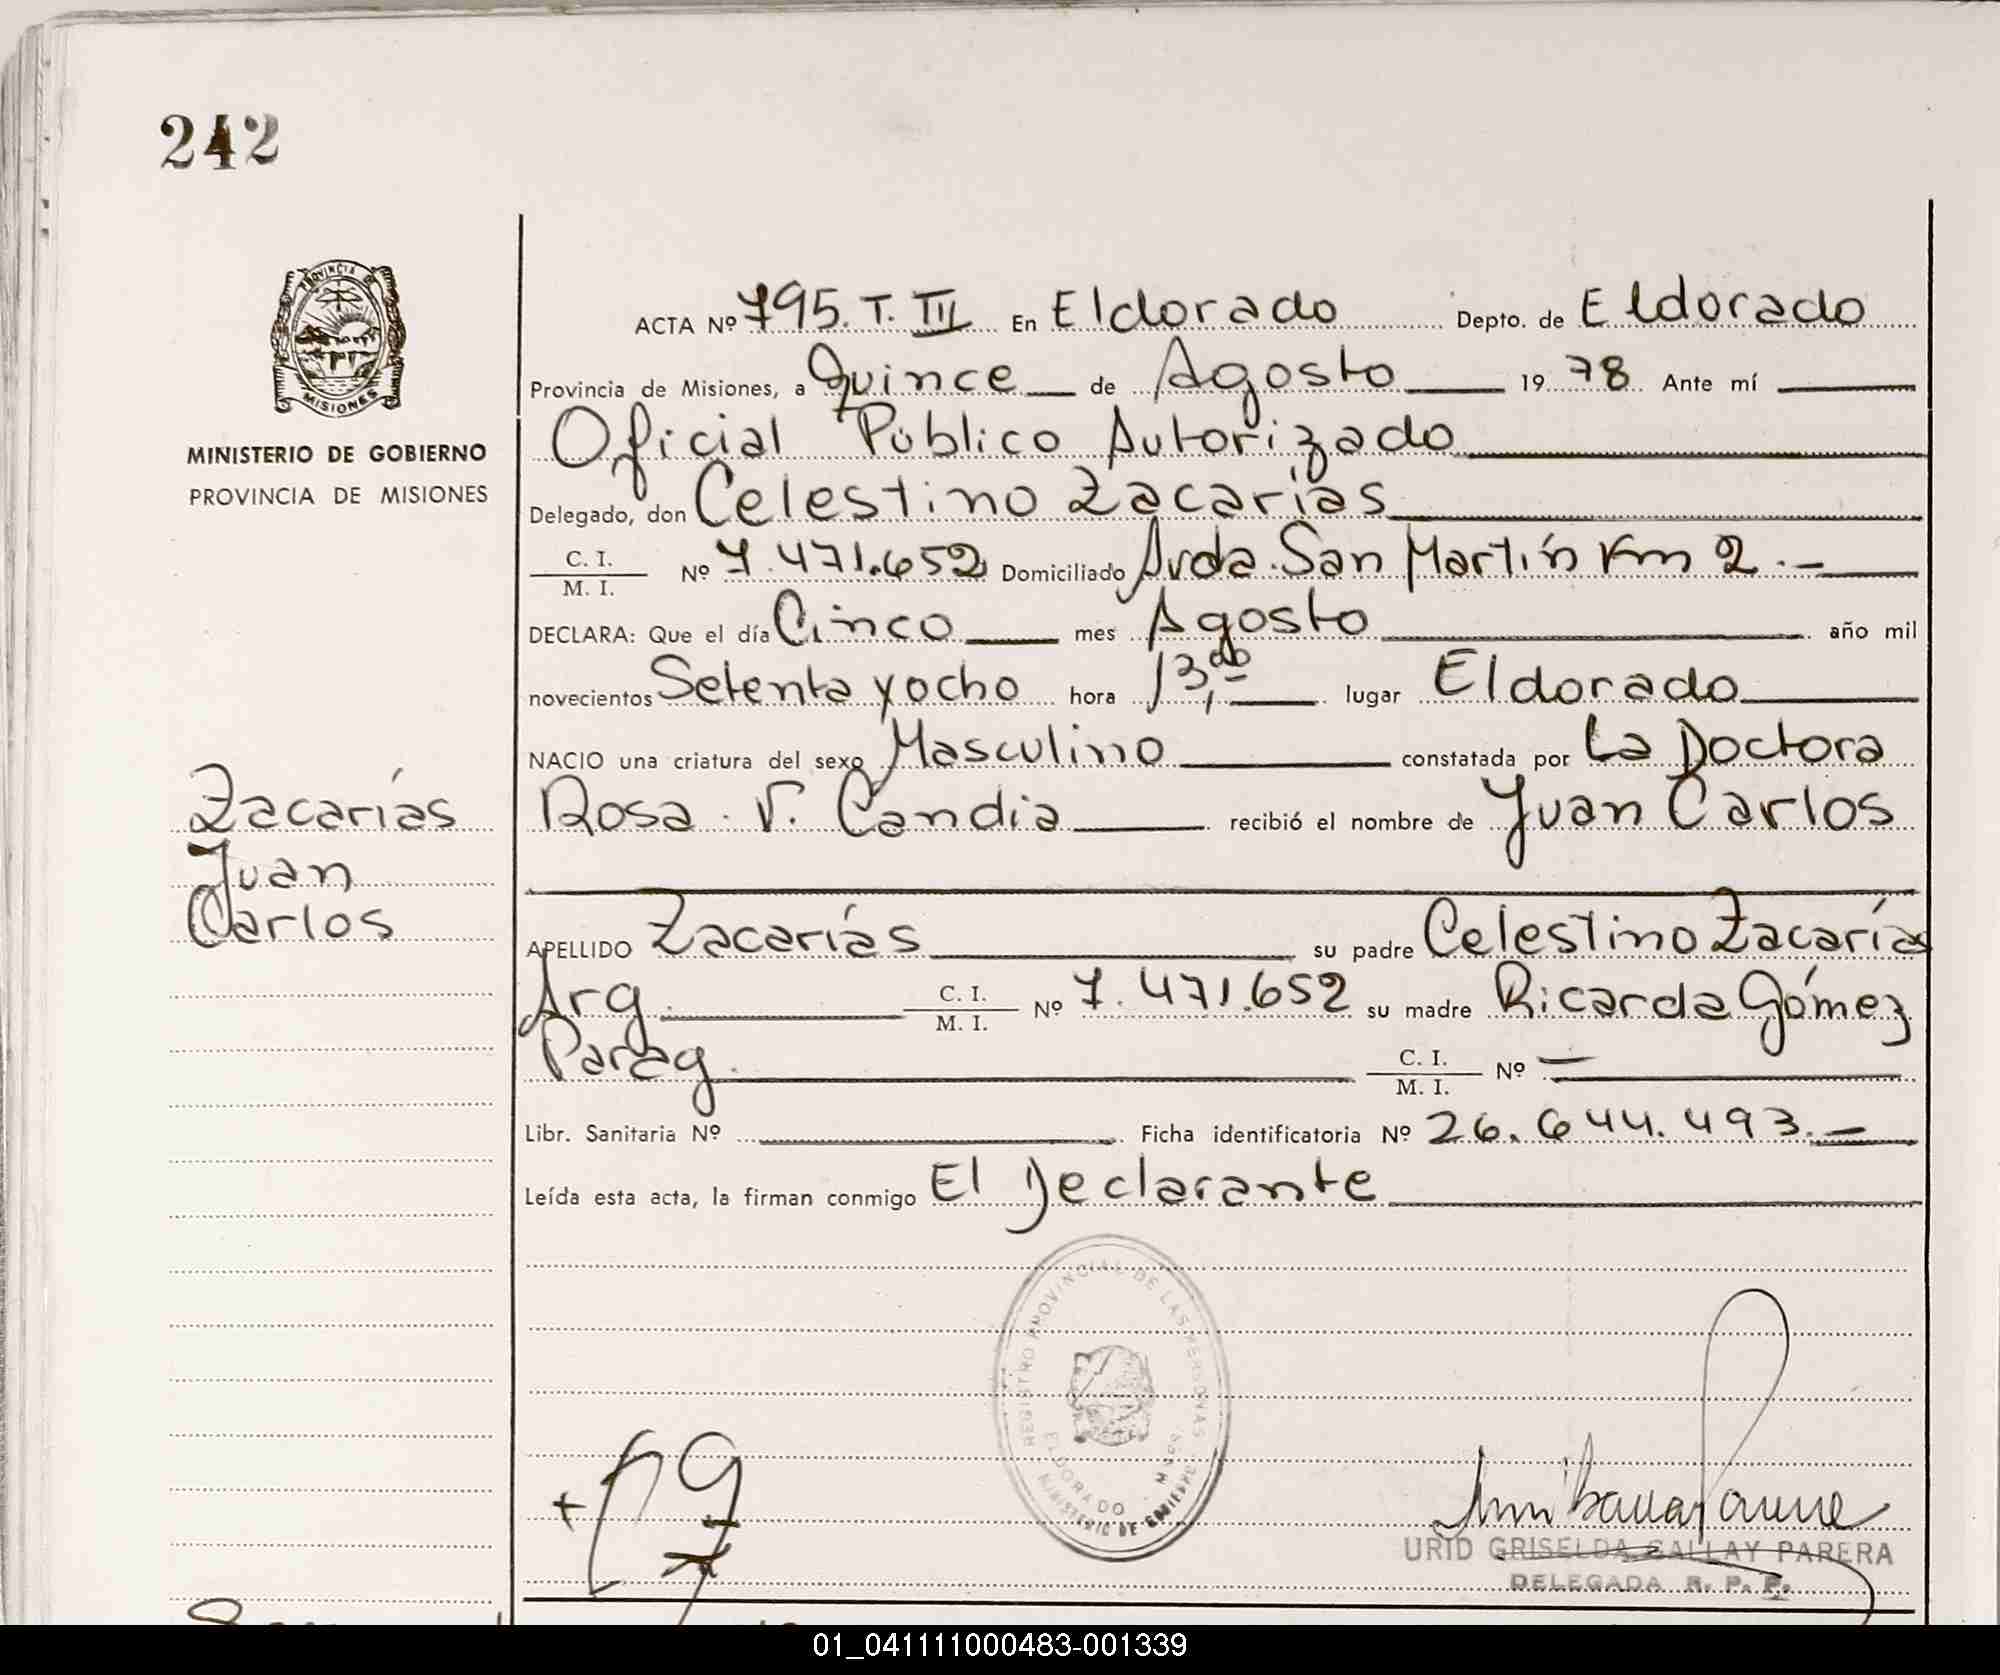 242
PROVINCIA DE
MISIONES
MINISTERIO DE GOBIERNO
PROVINCIA DE MISIONES
ACTA Nº 795. T. III En Eldorado Depto. de Eldorado
Provincia de Misiones, a Quince de Agosto 1978 Ante mí
Oficial Público Autorizado
Delegado, don Celestino Zacarías
C. I.
M. I. Nº 7.471.652 Domiciliado Avda. San Martín Km 2.-
DECLARA: Que el día Cinco mes Agosto año mil
novecientos Setenta y ocho hora 13,00 lugar Eldorado
NACIO una criatura del sexo Masculino constatada por La Doctora
Rosa V. Candia recibió el nombre de Juan Carlos
Zacarías
Juan
Carlos
APELLIDO Zacarías su padre Celestino Zacarías
Arg. C. I. M. I. Nº 7.471.652 su madre Ricarda Gómez
Parag. C. I. M. I. Nº —
Libr. Sanitaria Nº Ficha identificatoria Nº 26.644.493.-
Leída esta acta, la firman conmigo El Declarante
REGISTRO PROVINCIAL DE LAS PERSONAS
ELDORADO
MINISTERIO DE GOBIERNO
URID GRISELDA GALLAY PARERA
DELEGADA R. P. P.
01_041111000483-001339